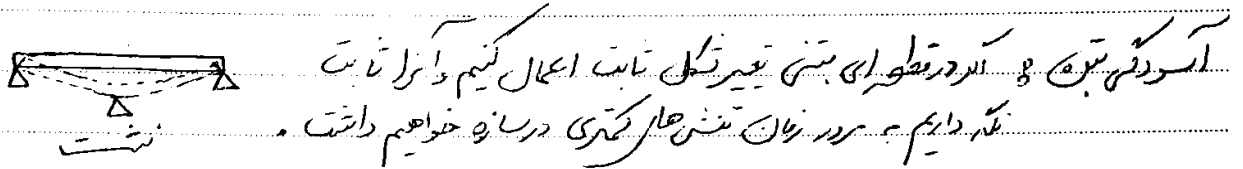 آسودگی بتن: اگر در قطعه ای بتنی تغییر شکل ثابت اعمال کنیم و آنرا ثابت
نگه داریم به مرور زمان تنش های کمتری در سازه خواهیم داشت.
نشست